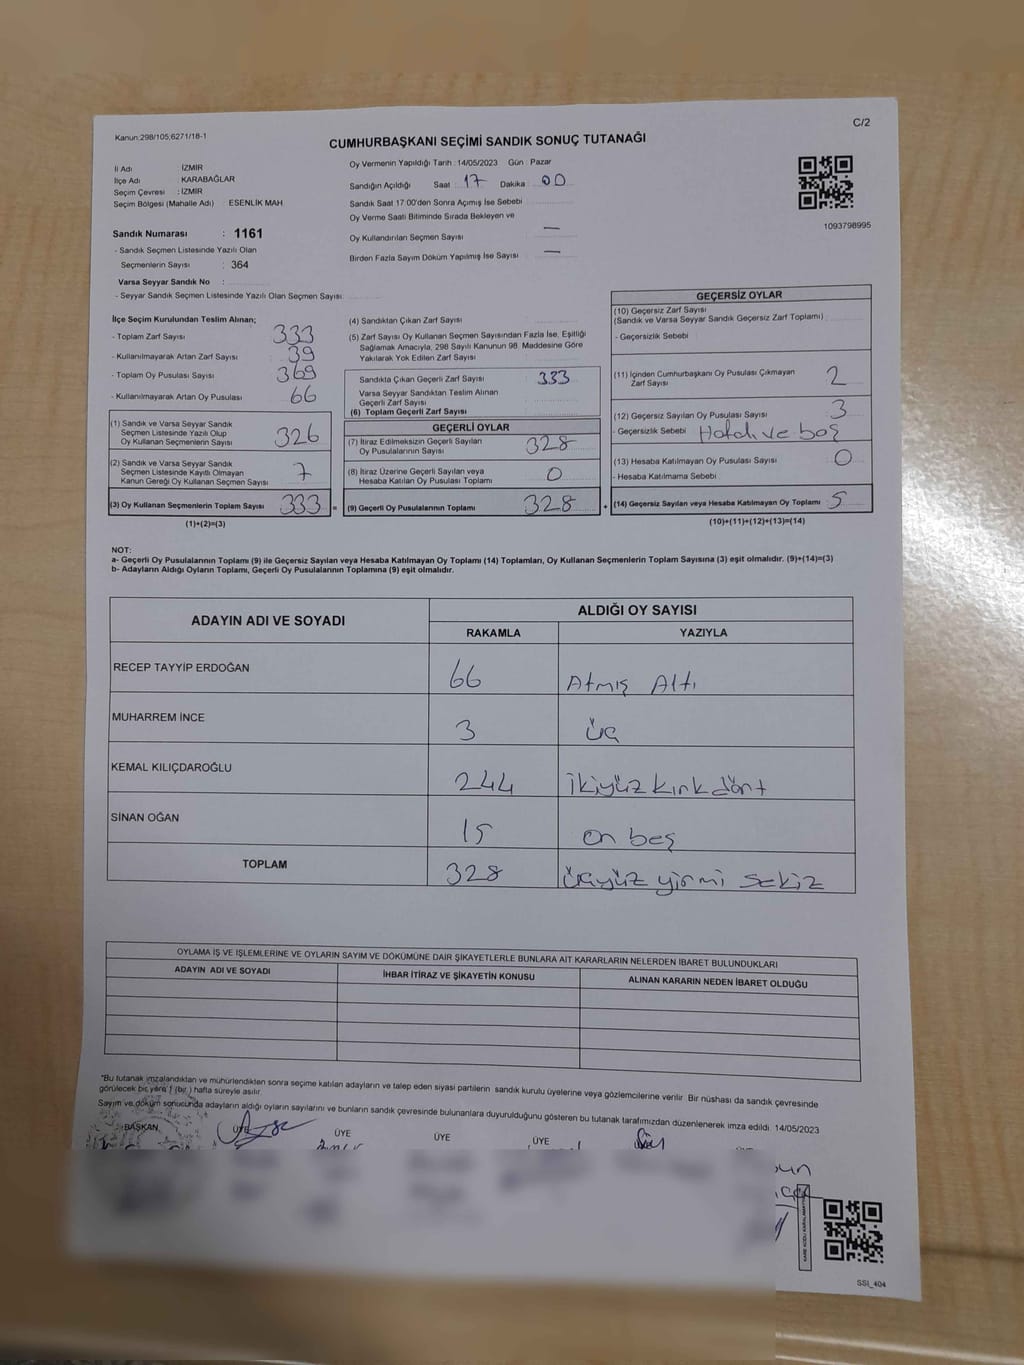 Kanun:298/105;6271/18-1
C/2
CUMHURBAŞKANI SEÇİMİ SANDIK SONUÇ TUTANAĞI
İl Adı : İZMİR
İlçe Adı : KARABAĞLAR
Seçim Çevresi : İZMİR
Seçim Bölgesi (Mahalle Adı) ESENLİK MAH
Sandık Numarası : 1161
- Sandık Seçmen Listesinde Yazılı Olan
Seçmenlerin Sayısı : 364
Varsa Seyyar Sandık No :
- Seyyar Sandık Seçmen Listesinde Yazılı Olan Seçmen Sayısı:
Oy Vermenin Yapıldığı Tarih : 14/05/2023 Gün : Pazar
Sandığın Açıldığı Saat 17 Dakika 00
Sandık Saat 17:00'den Sonra Açımış İse Sebebi
Oy Verme Saati Bitiminde Sırada Bekleyen ve
Oy Kullandırılan Seçmen Sayısı —
Birden Fazla Sayım Döküm Yapılmış İse Sayısı —
1093798995
İlçe Seçim Kurulundan Teslim Alınan;
- Toplam Zarf Sayısı 333
- Kullanılmayarak Artan Zarf Sayısı 39
- Toplam Oy Pusulası Sayısı 369
- Kullanılmayarak Artan Oy Pusulası 66
(1) Sandık ve Varsa Seyyar Sandık
Seçmen Listesinde Yazılı Olup
Oy Kullanan Seçmenlerin Sayısı 326
(2) Sandık ve Varsa Seyyar Sandık
Seçmen Listesinde Kayıtlı Olmayan
Kanun Gereği Oy Kullanan Seçmen Sayısı 7
(3) Oy Kullanan Seçmenlerin Toplam Sayısı 333 =
(1)+(2)=(3)
(4) Sandıktan Çıkan Zarf Sayısı
(5) Zarf Sayısı Oy Kullanan Seçmen Sayısından Fazla İse, Eşitliği
Sağlamak Amacıyla, 298 Sayılı Kanunun 98. Maddesine Göre
Yakılarak Yok Edilen Zarf Sayısı
Sandıkta Çıkan Geçerli Zarf Sayısı 333
Varsa Seyyar Sandıktan Teslim Alınan
Geçerli Zarf Sayısı
(6) Toplam Geçerli Zarf Sayısı
GEÇERLİ OYLAR
(7) İtiraz Edilmeksizin Geçerli Sayılan
Oy Pusulalarının Sayısı 328
(8) İtiraz Üzerine Geçerli Sayılan veya
Hesaba Katılan Oy Pusulası Toplamı 0
(9) Geçerli Oy Pusulalarının Toplamı 328 +
GEÇERSİZ OYLAR
(10) Geçersiz Zarf Sayısı
(Sandık ve Varsa Seyyar Sandık Geçersiz Zarf Toplamı)
- Geçersizlik Sebebi
(11) İçinden Cumhurbaşkanı Oy Pusulası Çıkmayan
Zarf Sayısı 2
(12) Geçersiz Sayılan Oy Pusulası Sayısı 3
- Geçersizlik Sebebi Hatalı ve boş
(13) Hesaba Katılmayan Oy Pusulası Sayısı 0
- Hesaba Katılmama Sebebi
(14) Geçersiz Sayılan veya Hesaba Katılmayan Oy Toplamı 5
(10)+(11)+(12)+(13)=(14)
NOT:
a- Geçerli Oy Pusulalarının Toplamı (9) ile Geçersiz Sayılan veya Hesaba Katılmayan Oy Toplamı (14) Toplamları, Oy Kullanan Seçmenlerin Toplam Sayısına (3) eşit olmalıdır. (9)+(14)=(3)
b- Adayların Aldığı Oyların Toplamı, Geçerli Oy Pusulalarının Toplamına (9) eşit olmalıdır.
ADAYIN ADI VE SOYADI ALDIĞI OY SAYISI
RAKAMLA YAZIYLA
RECEP TAYYİP ERDOĞAN 66 Atmış Altı
MUHARREM İNCE 3 üç
KEMAL KILIÇDAROĞLU 244 ikiyüz kırk dört
SİNAN OĞAN 15 on beş
TOPLAM 328 üçyüz yirmi sekiz
OYLAMA İŞ VE İŞLEMLERİNE VE OYLARIN SAYIM VE DÖKÜMÜNE DAİR ŞİKAYETLERLE BUNLARA AİT KARARLARIN NELERDEN İBARET BULUNDUKLARI
ADAYIN ADI VE SOYADI İHBAR İTİRAZ VE ŞİKAYETİN KONUSU ALINAN KARARIN NEDEN İBARET OLDUĞU
"Bu tutanak imzalandıktan ve mühürlendikten sonra seçime katılan adayların ve talep eden siyasi partilerin sandık kurulu üyelerine veya gözlemcilerine verilir. Bir nüshası da sandık çevresinde
görülecek bir yere 1 (bir ) hafta süreyle asılır.
Sayım ve döküm sonucunda adayların aldığı oyların sayılarını ve bunların sandık çevresinde bulunanlara duyurulduğunu gösteren bu tutanak tarafımızdan düzenlenerek imza edildi. 14/05/2023
BAŞKAN ÜYE ÜYE ÜYE ÜYE
SSI_404